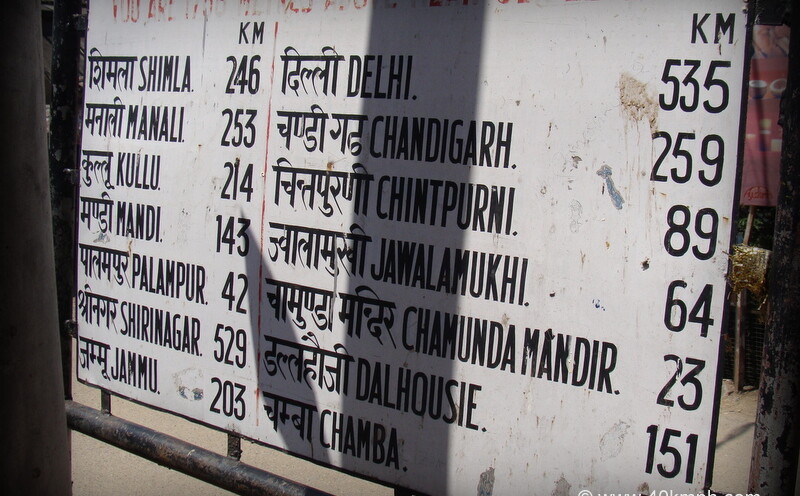 YOU ARE METRES ABOVE MEAN
KM
शिमला SHIMLA. 246
मनाली MANALI. 253
कुल्लू KULLU. 214
मण्डी MANDI. 143
पालमपुर PALAMPUR. 42
श्रीनगर SHIRINAGAR. 529
जम्मू JAMMU. 203
KM
दिल्ली DELHI. 535
चण्डीगढ CHANDIGARH. 259
चिन्तपुरणी CHINTPURNI. 89
ज्वालामुखी JAWALAMUKHI. 64
चामुण्डा मंदिर CHAMUNDA MANDIR. 23
डल्लहौजी DALHOUSIE. 151
चम्बा CHAMBA.